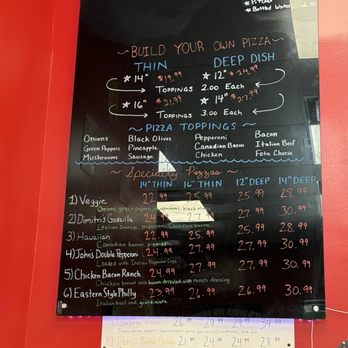 Bottled Water
~ BUILD YOUR OWN PIZZA ~
THIN DEEP DISH
★ 14" $19.99 ★ 12" $24.99
TOPPINGS 2.00 Each
★ 16" $21.99 ★ 14" $27.99
TOPPINGS 3.00 Each
~ PIZZA TOPPINGS ~
Onions Black Olives Pepperoni Bacon
Green Peppers Pineapple Canadian Bacon Italian Beef
Mushrooms Sausage Chicken Feta Cheese
~ Specialty Pizzas ~
14" THIN 16" THIN 12" DEEP 14" DEEP
1) Veggie 22.99 25.99 25.99 28.99
Onions, green peppers, mushrooms, black
2) Dimitri's Godzilla 24 27. 27.99 30.99
Italian Sausage, pepperoni, Canadian bacon
3) Hawaiian 22.99 25.99 25.99 28.99
Canadian bacon,
4) John's Double Pepperoni 24.99 27.99 27.99 30.99
Loaded with Italian Pepperoni Cups
5) Chicken Bacon Ranch 24.99 27.99 27.99 30.99
Chicken breast and bacon drizzled with ranch dressing
6) Eastern Style Philly 23.99 26.99 26.99 28.99
Italian beef and giardiniera